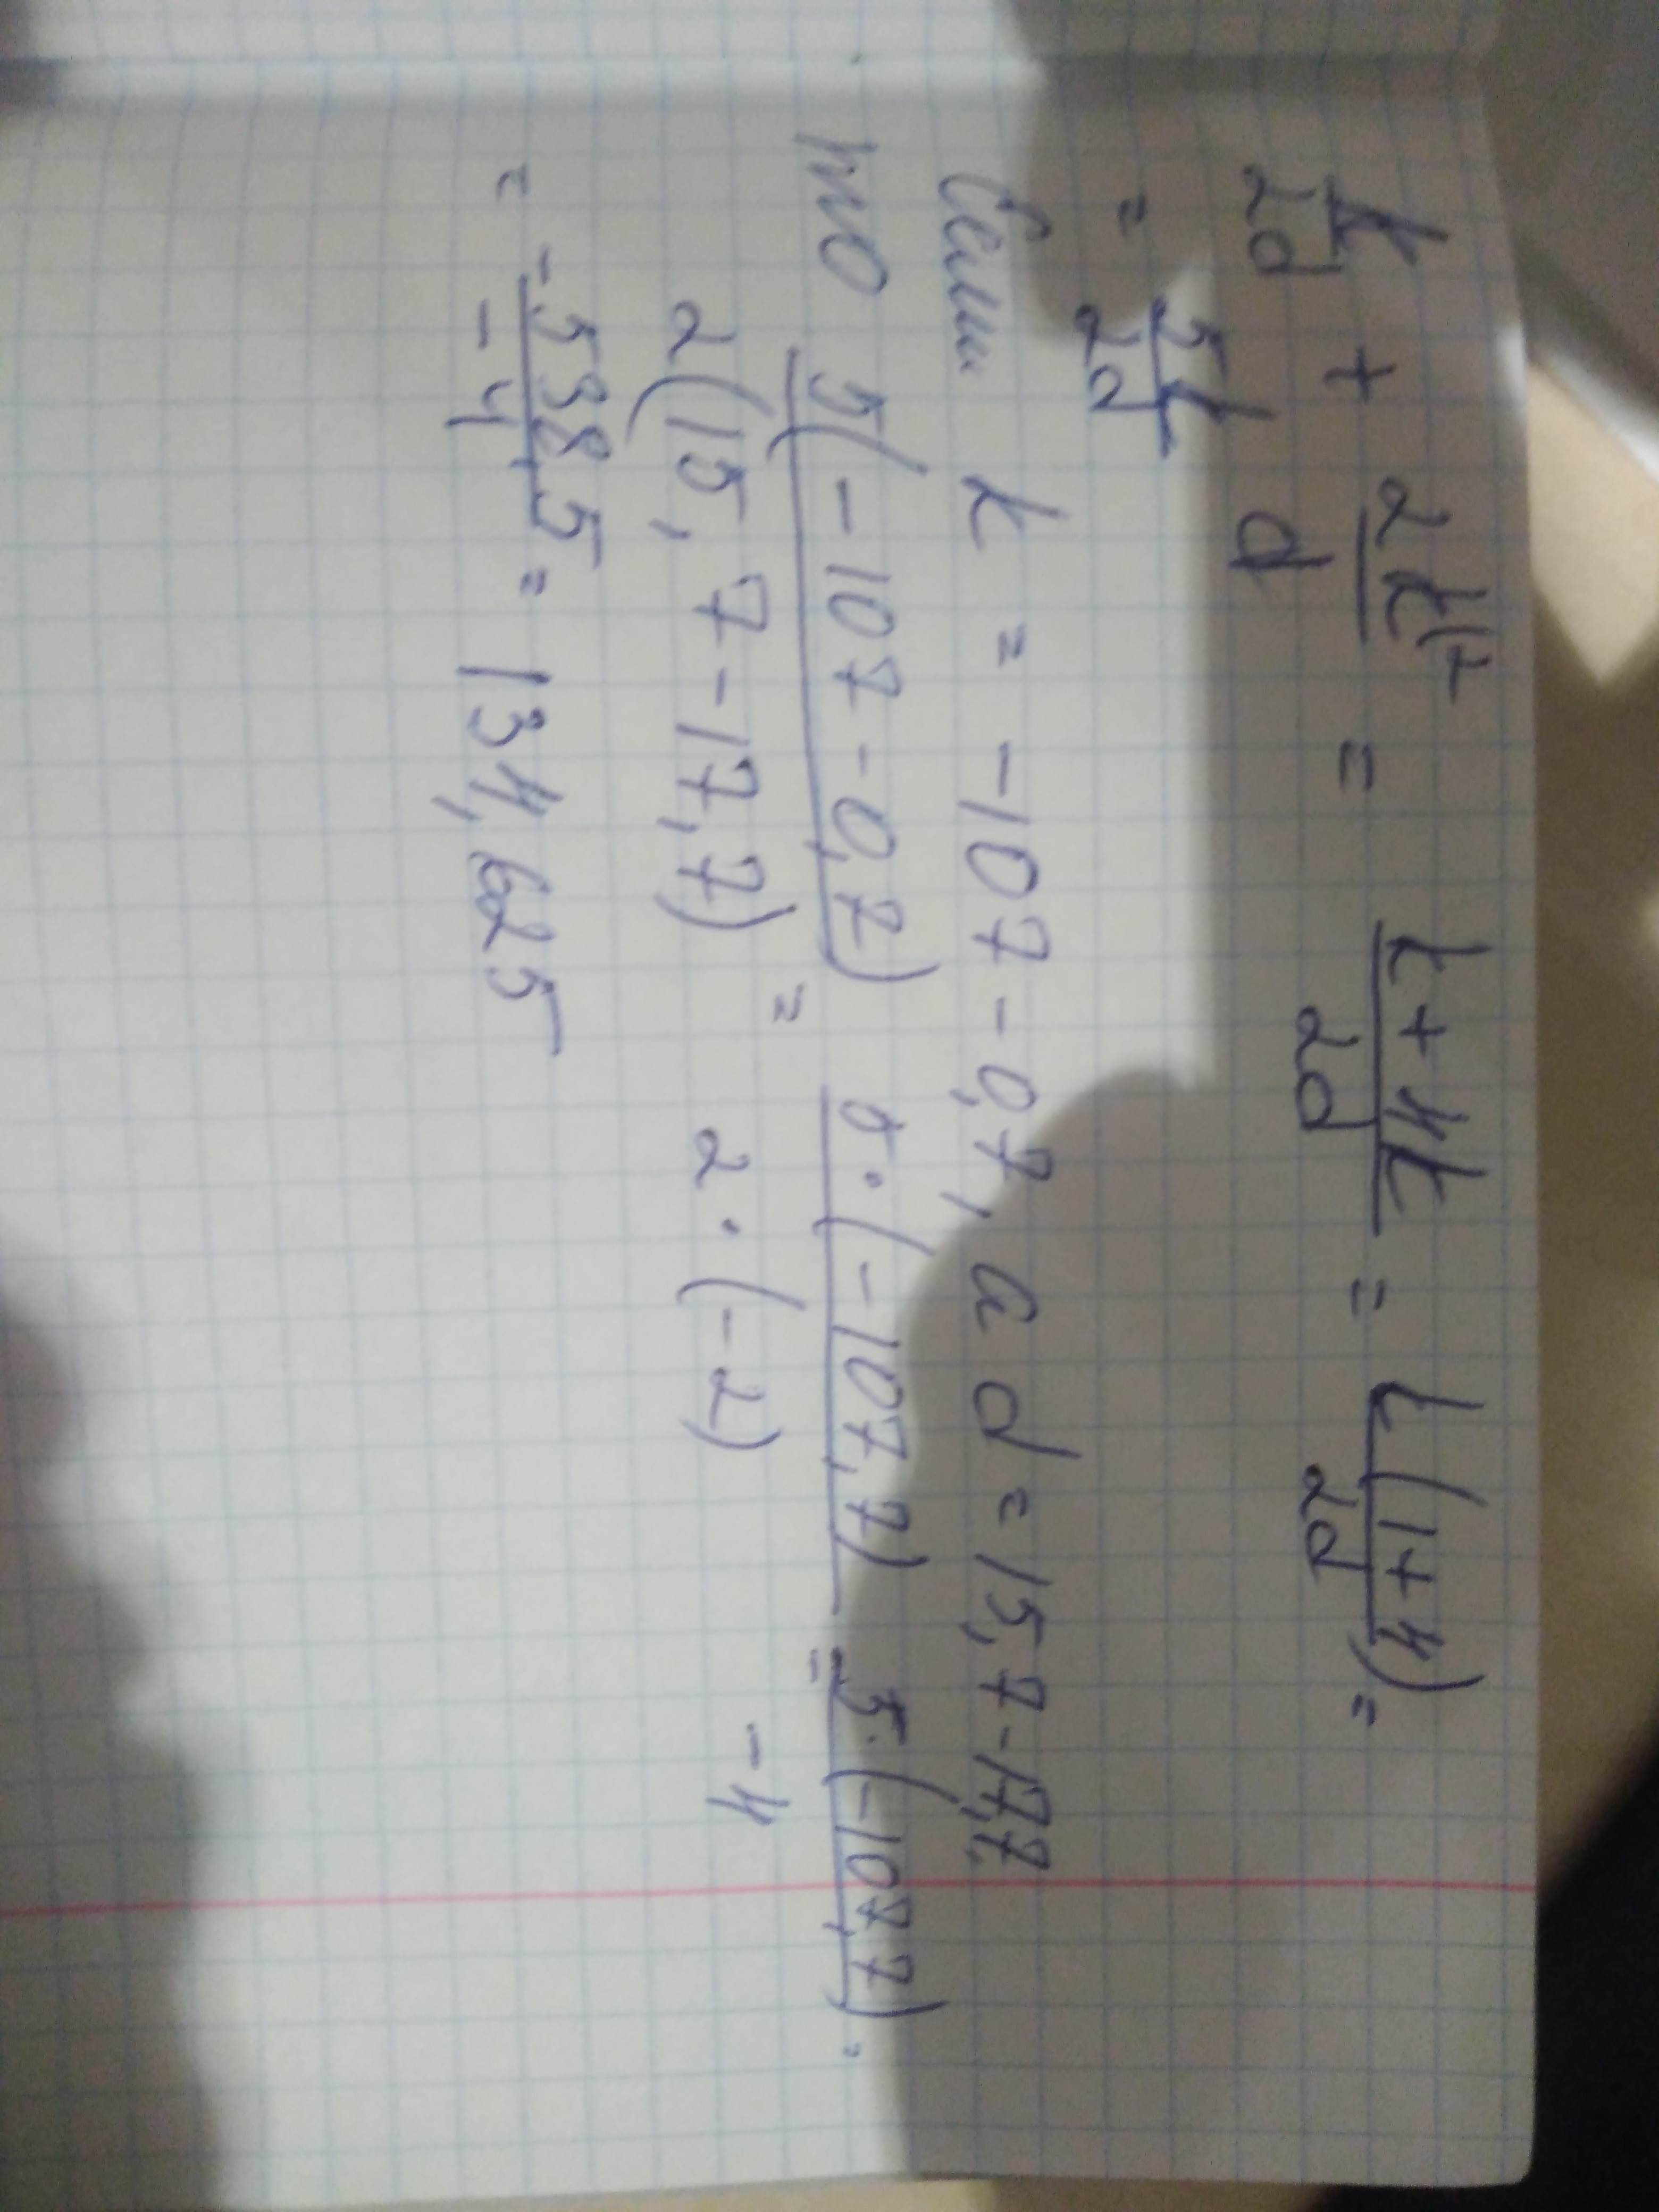 k/2d + 2k^{|2}/d = k+4k/2d = k(1+4)/2d =
= 5k/2d
Если k = -107-0,7, а d = 15,7-17,7,
то 5(-107-0,7)/2(15,7-17,7) = 5·(-107,7)/2·(-2) = 5·(-107,7)/-4 =
= -538,5/-4 = 134,625